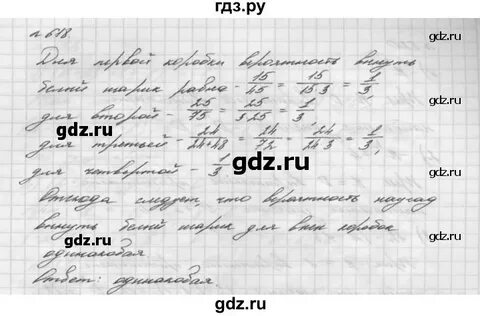 гдз.ру
№618.
Для первой коробки вероятность вынуть
белый шарик равна - 15/45 = 15/15·3 = 1/3,
для второй - 25/75 = 25/3·25 = 1/3,
для третьей - 24/24+48 = 24/72 = 24/24·3 = 1/3,
gdz.ru gdz.ru
для четвертой - 1/3.
Отсюда следует, что вероятность наугад
вынуть белый шарик для всех коробок
gdz.ru
одинаковая
Ответ: одинаковая.
gdz.ru gdz.ru